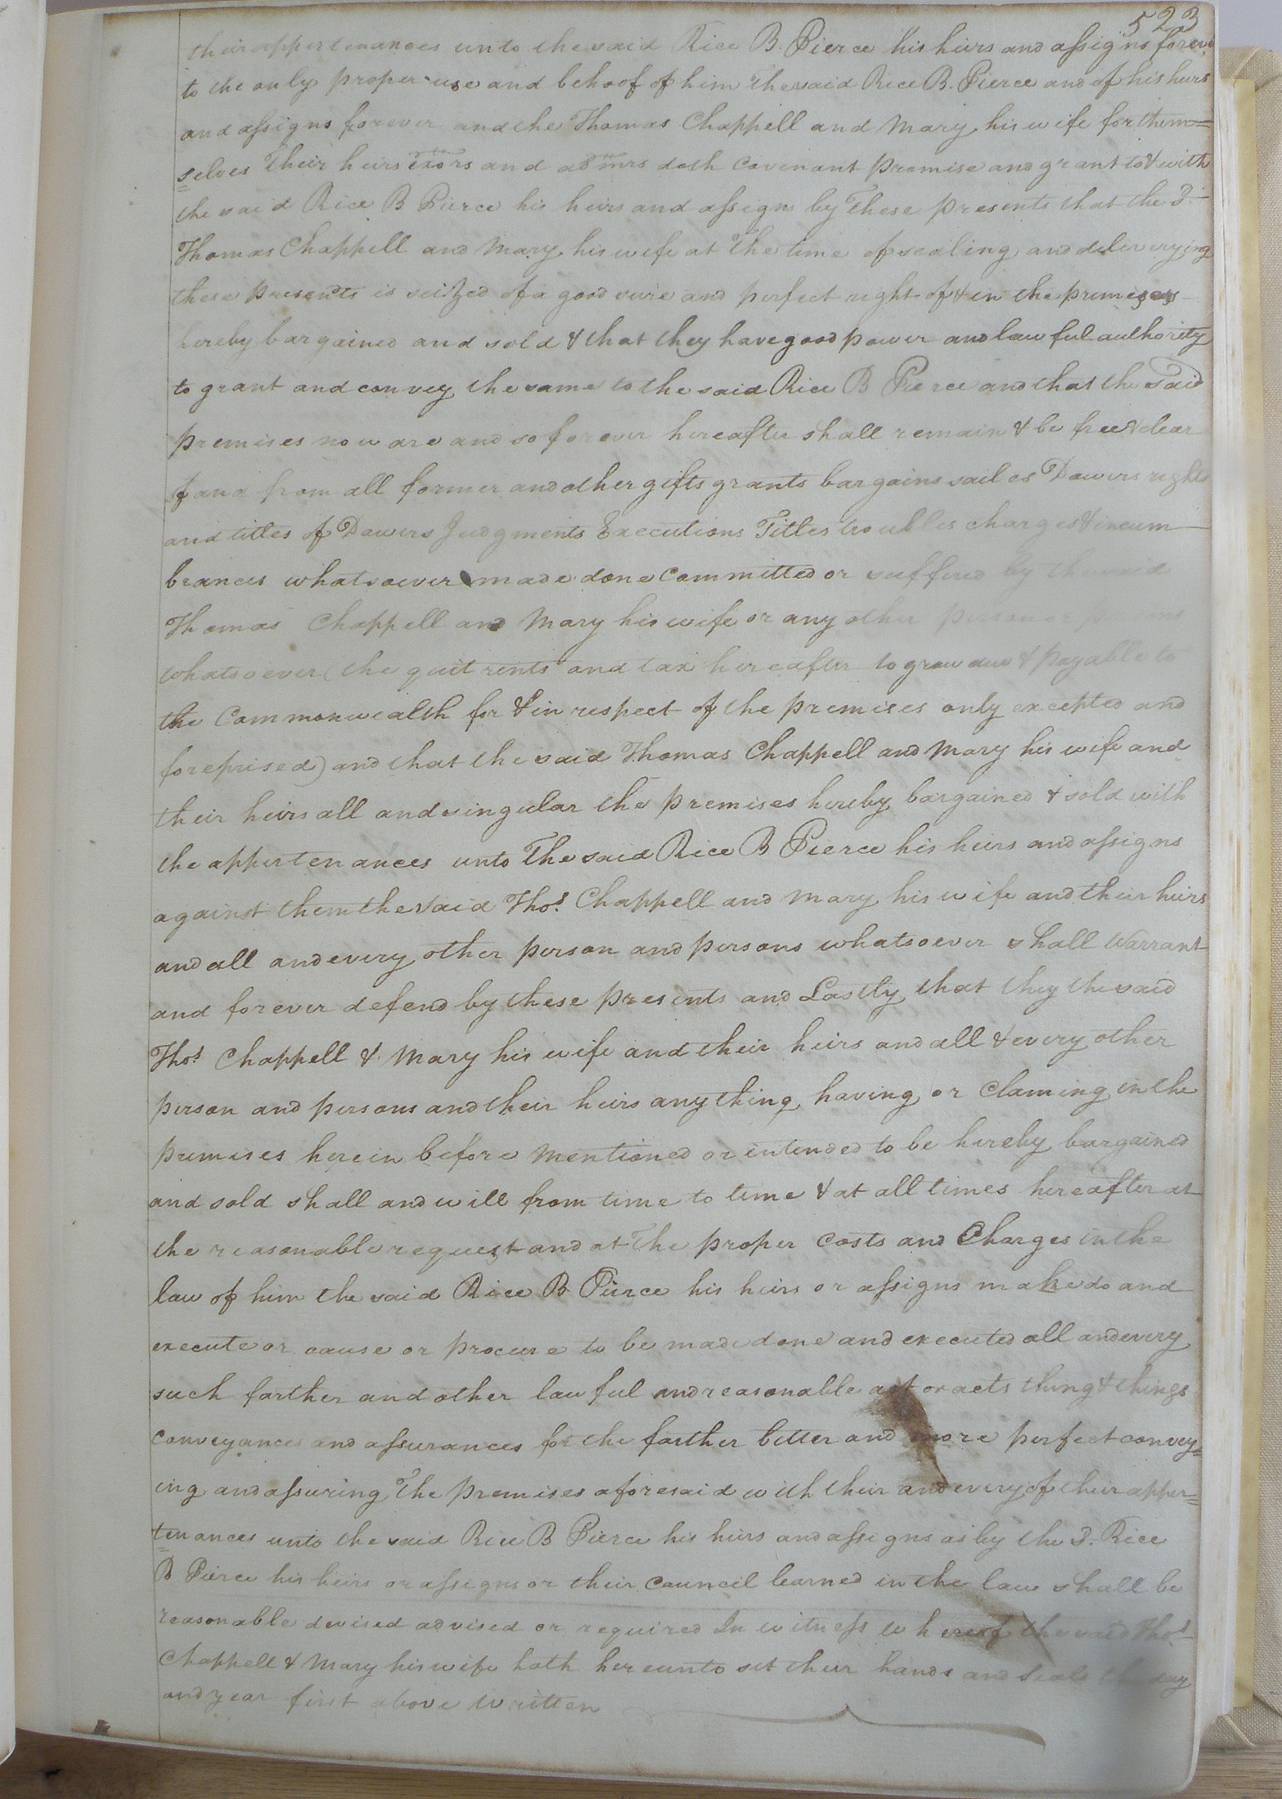 523
their appertenances unto the said Rice B. Pierce his heirs and assigns forever
to the only proper use and behoof of him the said Rice B. Pierce and of his heirs
and assigns forever and the Thomas Chappell and Mary his wife for them=
=selves their heirs Exors and admrs doth Covenant promise and grant to & with
the said Rice B Pierce his heirs and assign by These presents that the Sd.
Thomas Chappell and Mary his wife at the time of sealing and deliverying
these presents is seitzed of a good sure and perfect right of & in the premises
hereby bargained and sold & that they have good power and lawful authority
to grant and convey the same to the said Rice B Pierce and that the said
premises now are and so forever hereafter shall remain & be free & clear
of and from all former and other gifts grants bargains sailes Dowers rights
and titles of Dowers Judgments Executions Titles troubles charges & incum
brances whatsoever made done committed or suffered by the said
Thomas Chappell and Mary his wife or any other person or persons
whatsoever (the quit rents and tax hereafter to grow due & payable to
the Commonwealth for & in respect of the premises only excepted and
foreprised) and that the said Thomas Chappell and Mary his wife and
their heirs all and singular the premises hereby bargained & sold with
the appertenances unto The said Rice B Pierce his heirs and assigns
against them the said Thos. Chappell and Mary his wife and their heirs
and all and every other person and persons whatsoever shall Warrant
and forever defend by these presents and Lastly that they the said
Thos. Chappell & Mary his wife and their heirs and all & every other
person and persons and their heirs any thing having or Claming in the
premises herein before mentioned or intended to be hereby bargained
and sold shall and will from time to time & at all times hereafter at
the reasonable request and at the proper costs and Charges in the
law of him the said Rice B Pierce his heirs or assigns make do and
execute or cause or procure to be made done and executed all and every
such farther and other lawful and reasonable act or acts thing & things
conveyances and assurances for the farther better and more perfect convey=
ing and assuring The premises aforesaid with their and every of their apper=
=tenances unto the said Rice B Pierce his heirs and assigns as by the Sd. Rice
B Pierce his heirs or assigns or their council learned in the law shall be
reasonable devised advised or required In witness whereof the said Thos.
Chappell & Mary his wife hath hereunto set their hands and Seals the day
and year first above written